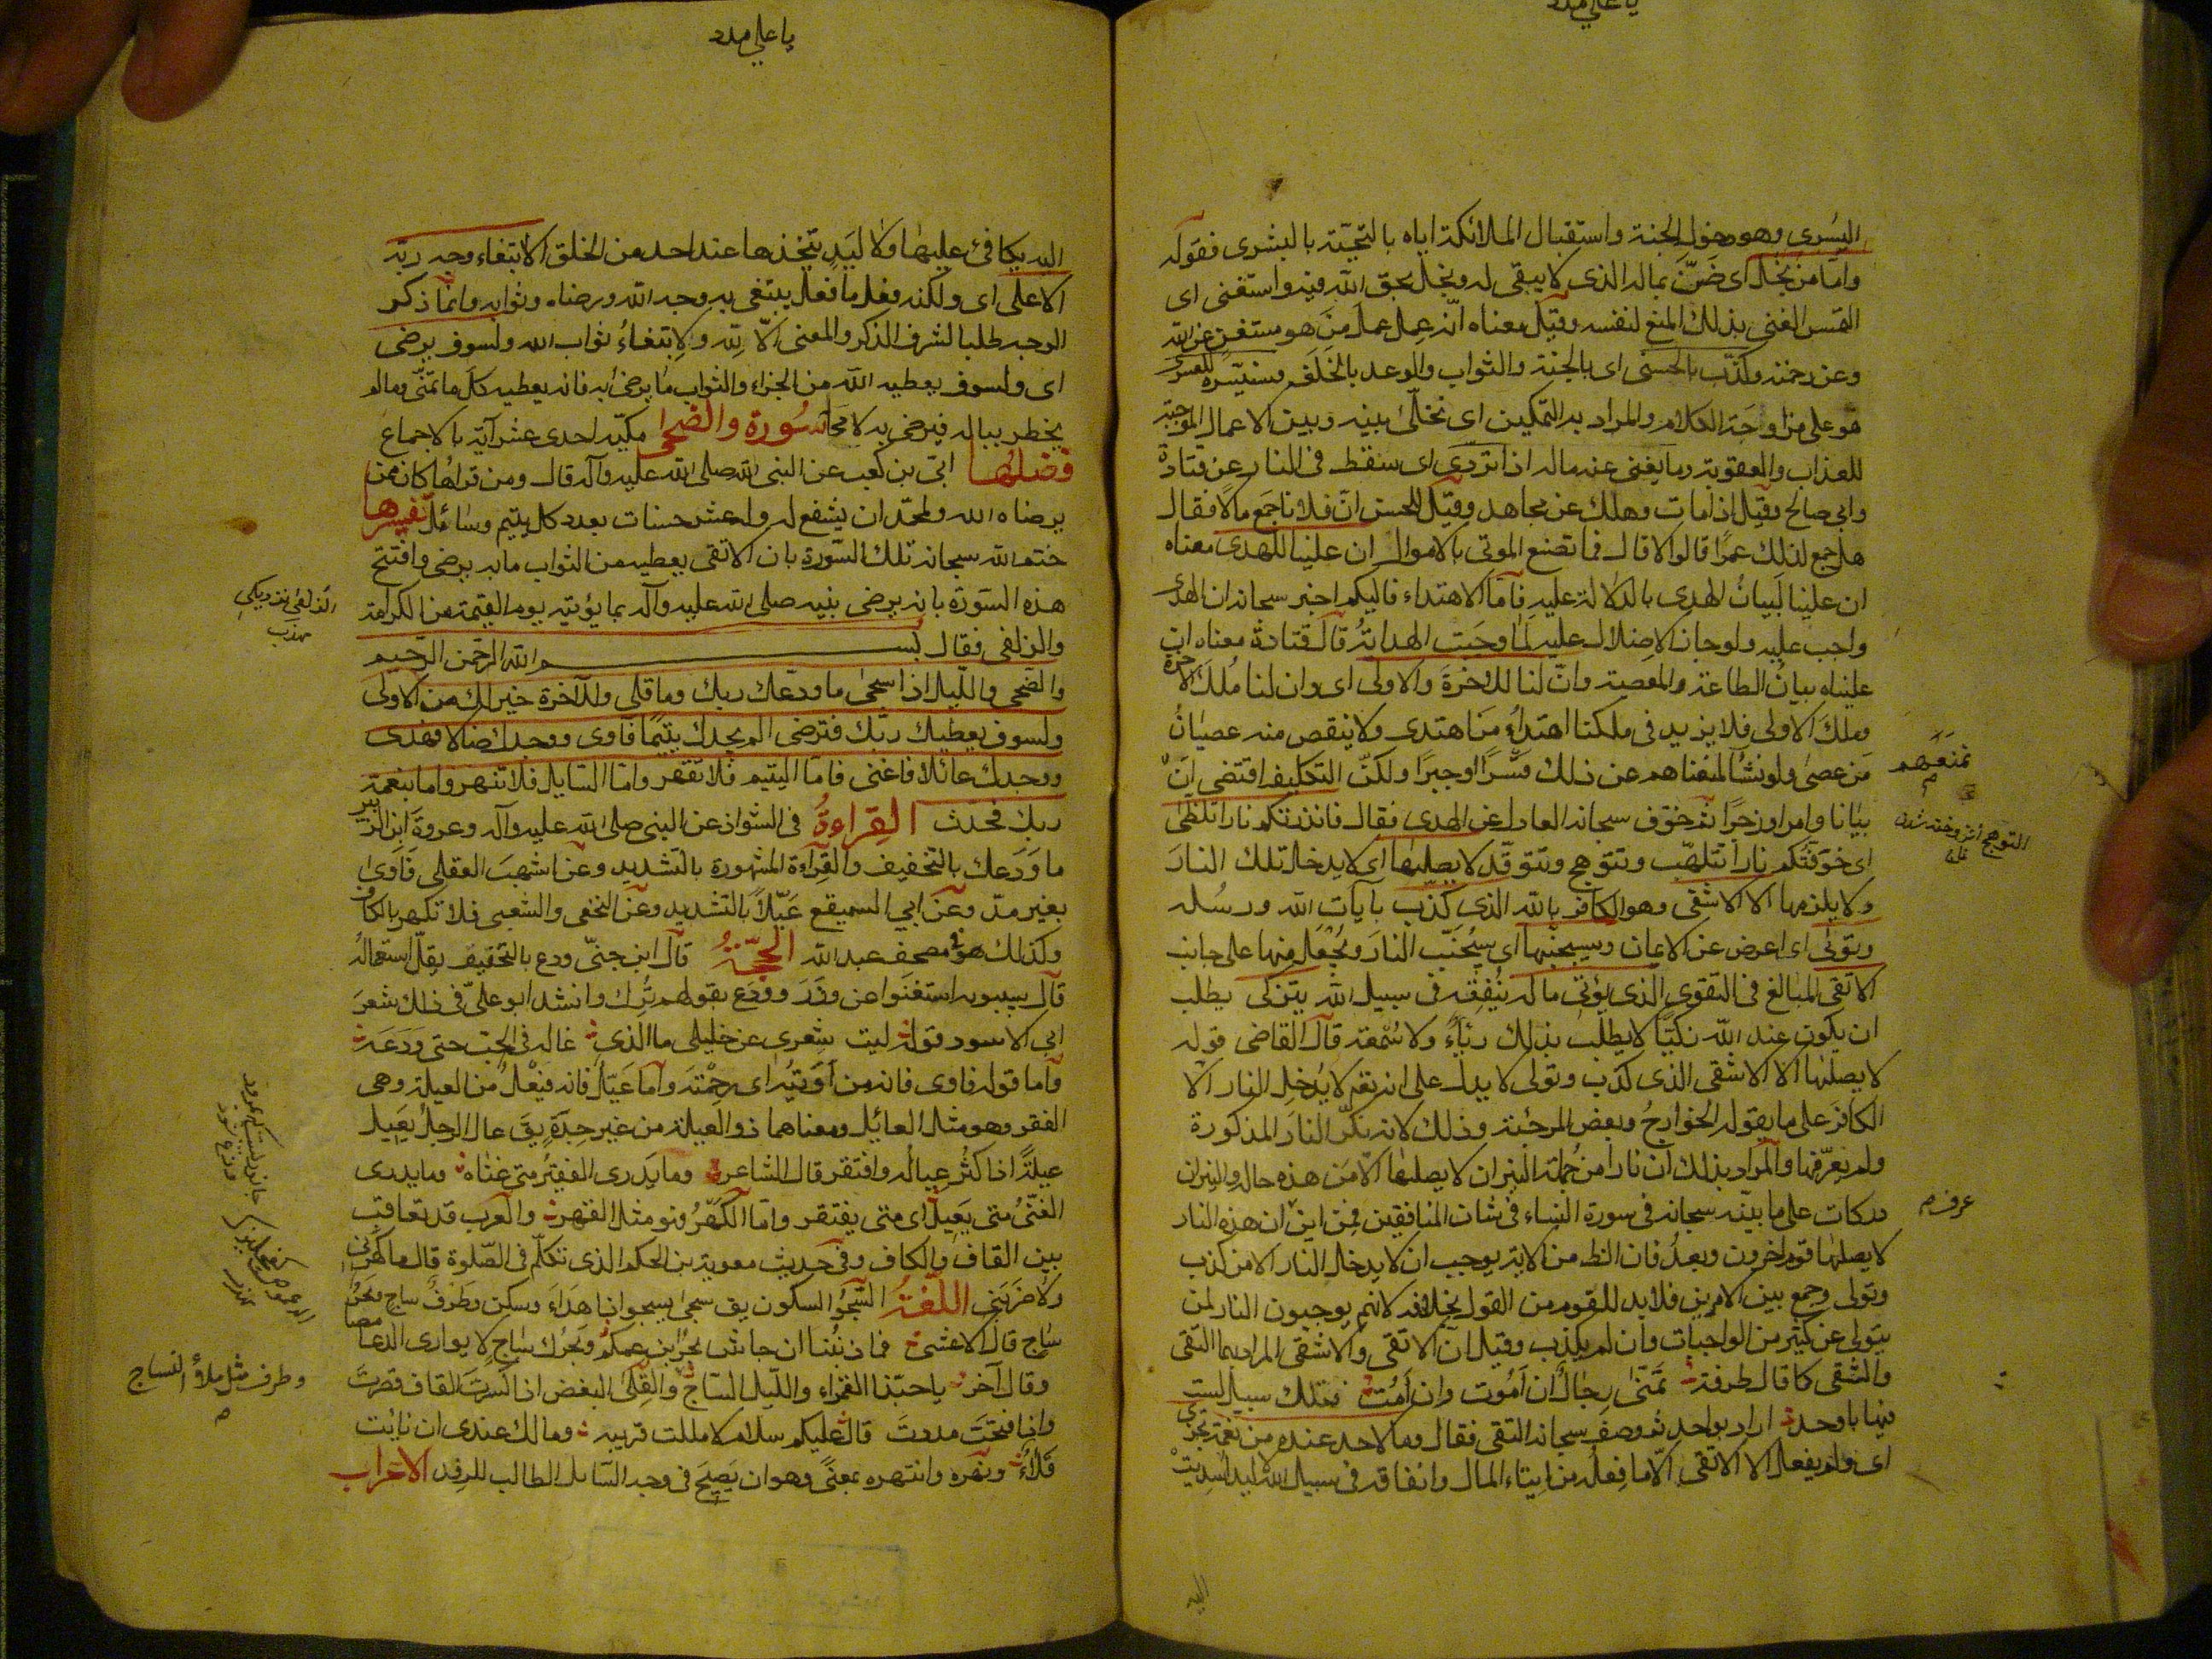 يا علي مدد
اليسرى وهو دخول الجنة واستقبال الملائكة اياه بالتحية بالبشرى فقوله
واما من بخل اى ضَنّ بماله الذى لا يبقى له وبخل بحق الله فيه واستغنى اى
التمس الغنى بذلك المنع لنفسه وقيل معناه انّه عمل عملَ مَن هو مستغنٍ عن الله
وعن رحمته وكذّب بالحسنى اى بالجنة والثواب والوعد بالخَلَف فسنيسّره للعسرى
هو على مزاوجة الكلام والمراد به التمكين اى نخلّى بينه وبين الاعمال الموجبة
للعذاب والعقوبة وما يغنى عنه ماله اذا تردّى اى سقط فى النار عن قتادة
وابى صالح وقيل اذا مات وهلك عن مجاهد وقيل للحسن انّ فلانا جمَع مالًا فقال
هل جمع لذلك عمرًا قالوا لا قال فما تصنع الموتى بالاموال ان علينا للهدى معناه
ان علينا لَبيانُ الهدى بالدلالة عليه فامّا الاهتداء فاليكم اخبر سبحانه ان الهدى
واجب عليه ولو جاز الاضلال عليه لَما وجَبت الهداية قال قتادة معناه ان
علينا بيانُ الطاعة والمعصية وانّ لنا للاخرةَ والاولى اى وان لنا مُلكَ الاخرة
وملكَ الاولى فلا يزيد فى ملكنا اهتداءُ مَن اهتدى ولا ينقص منه عصيانُ
مَن عصى ولو نشأ لمنعناهم عن ذلك قَسْرًا وجبرًا ولكنّ التكليف اقتضى انْ
تمنعهم
بيانا وامرا وزجرًا ثم خوّف سبحانه العادل عن الهدى فقال فانذرتكم نارا تلظّى
التوهج
اى خوّفتُكم نارا تتلهّب وتتوهج وتتوقّد لا يصليها اى لا يدخل تلك النارَ
ولا يلزمها الا الاشقى وهو الكافر بالله الذى كذّب بآيات الله ورسُله
وتولّى اى اعرض عن الايمان وسيجنبها اى سيُجنَّب النارَ ويُجعَل منها على جانب
الاتقى المبالغ فى التقوى الذى يؤتى ماله يُنفقه فى سبيل الله يتزكى يطلب
ان يكون عند الله زكيًّا لا يطلب بذلك رئاءً ولا سُمْعة قال القاضى قوله
لا يصليها الا الاشقى الذى كذب وتولى لا يدل على انه تعم لا يُدخِل النار الا
الكافرَ على ما يقوله الخوارجُ وبعض المرجئة وذلك لانه نكّر النارَ المذكورة
ولم يعرّفها والمراد بذلك ان نارا من جُملة النيران لا يصليها الّا مَن هذه حاله والنيران
دركات على ما بيّنه سبحانه فى سورة النساء فى شان المنافقين فمِن اين ان هذه النار
عرف م
لا يصليها قوم اخرون وبعدُ فان الظ من الاية يوجب ان لا يدخل النار الا من كذب
وتولى وجمع بين الامرين فلابد للقوم من القول بخلافه لانهم يوجبون النار لمن
يتولى عن كثير من الواجبات وان لم يكذب وقيل انّ الاتقى والاشقى المراد بهما التقى
والشقى كما قال طرفة تمَنّى رجالٌ ان اَمُوت وان اَمُت فتلك سبيل لست
فيها باوحد اراد بواحد ثم وصف سبحانه التقى فقال وما لاحد عنده من نعمة تجزى
اى ولم يفعل الا الاتقى الّا ما فعلُه من ايتاء المال وانفاقه فى سبيل الله ليد اُسديت
اليه
يا علي مدد
اليه يكافئ عليها ولا ليَدٍ يتّخذها عند احد من الخلق الا ابتغاء وجه ربّه
الاعلى اى ولكنه فعل ما فعل يبتغى به وجه الله ورضاه وثوابه وانما ذكر
الوجه طلبا لشرف الذكر والمعنى الّا لِلّه ولابتغاءِ ثواب الله ولسوف يرضى
اى ولسوف يعطيه الله من الجزاء والثواب ما يرضى به فانه يعطيه كلَ ما تمنّى وما لم
يخطر بباله فيرضى به لا محالة سُورة والضحى مكيّة احدى عشر آية بالاجماع
فضلها ابىّ بن كعب عن النبى صلى الله عليه وآله قال ومن قراها كان ممن
يرضاه الله ولمحمّد ان يشفع له وله عشر حسنات بعدد كل يتيم وسائل تفسيرها
ختم الله سبحانه تلك السّورة بان الاتقى يعطيه من الثواب ما به يرضى وافتتح
هذه السورة بانه يرضى نبيه صلى الله عليه وآله بما يؤتيه يوم القيمة من الكرامة
الزلفى نزديكى
مهذب
والزلفى فقال بســم الله الرحمن الرحيم
والضحى والليل اذا سجى ما ودّعك ربك وما قلى وللآخرة خير لك من الاولى
ولسوف يعطيك ربّك فترضى الم يجدك يتيمًا فآوى ووجدك ضالا فهدى
ووجدك عائلا فاغنى فامّا اليتيم فلا تقهر وامّا السايل فلا تنهر واما بنعمة
ربك فحدّث القِراءةُ فى الشواذ عن النبى صلى الله عليه وآله وعروة ابن الزبير
ما وَدَعك بالتخفيف والقراءة المشهورة بالتشديد وعن اشهب العقلى فَاَوى
بغير مدّ وعن ابى السميقع عَيّلًا بالتشديد وعن النخعى والشعبى فلا تكهر بالكاف
وكذلك هو فى مصحف عبد الله الحُجّةُ قال ابن جنّى ودع بالتخفيف يقلّ استعمالُه
قال سيبويه استغنَوا عن وذَر وودَع بقولهم ترك وانشد ابو علىّ فى ذلك شعرَ
ابى الاسود قوله ليت شِعرى عن خليلى ما الذى غاله فى الحب حتى وَدَعَه
وامّا قوله فاوى فانه من اَوَيتُه اى رحِمْتَه وامّا عَيّل فانه فَيْعل من العيلة وهى
الفقر وهو مثل العائل ومعناهما ذو العيلة من غير جِدَةٍ يق عال الرجلُ يَعِيل
عيلةً اذا كثُر عيالُه وافتقر قال الشاعر وما يَدرى الفقيرُ متى غناه وما يدرى
الغنىُّ متى يَعِيل اى متى يفتقر وامّا الكَهرُ فهو مثل القهر والعرب قد تعاقب
بين القاف والكاف وفى حديث معوية بن الحكم الذى تكلّم فى الصّلوة قال ما كهرنى
ولا ضرَبنى اللغةُ السَّجْوُ السكون يق سجى يسجو اذا هَدَاَ وسكن وطَرْفٌ ساجٍ وبَحرٌ
ساجٍ قال الاعشى فما ذنبُنا ان جاش بحرُ ابن عمكم وبَحرُك ساجٍ لا يوارى الدعامصا
وقال آخر يا حبّذا القمراء والليل السّاج والقِلَى البغض اذا كَسرتَ القاف قصَرتَ
وطرف مثل ملاء النساج
م
واذا فتحتَ مددتَ قال عليكم سلام لا مللت قريبه وما لك عندى ان نايت
قَلاء ونهره وانتهره بمعنًى وهو ان يَصِيحَ فى وجه السّائل الطالب للرِفد الاعراب